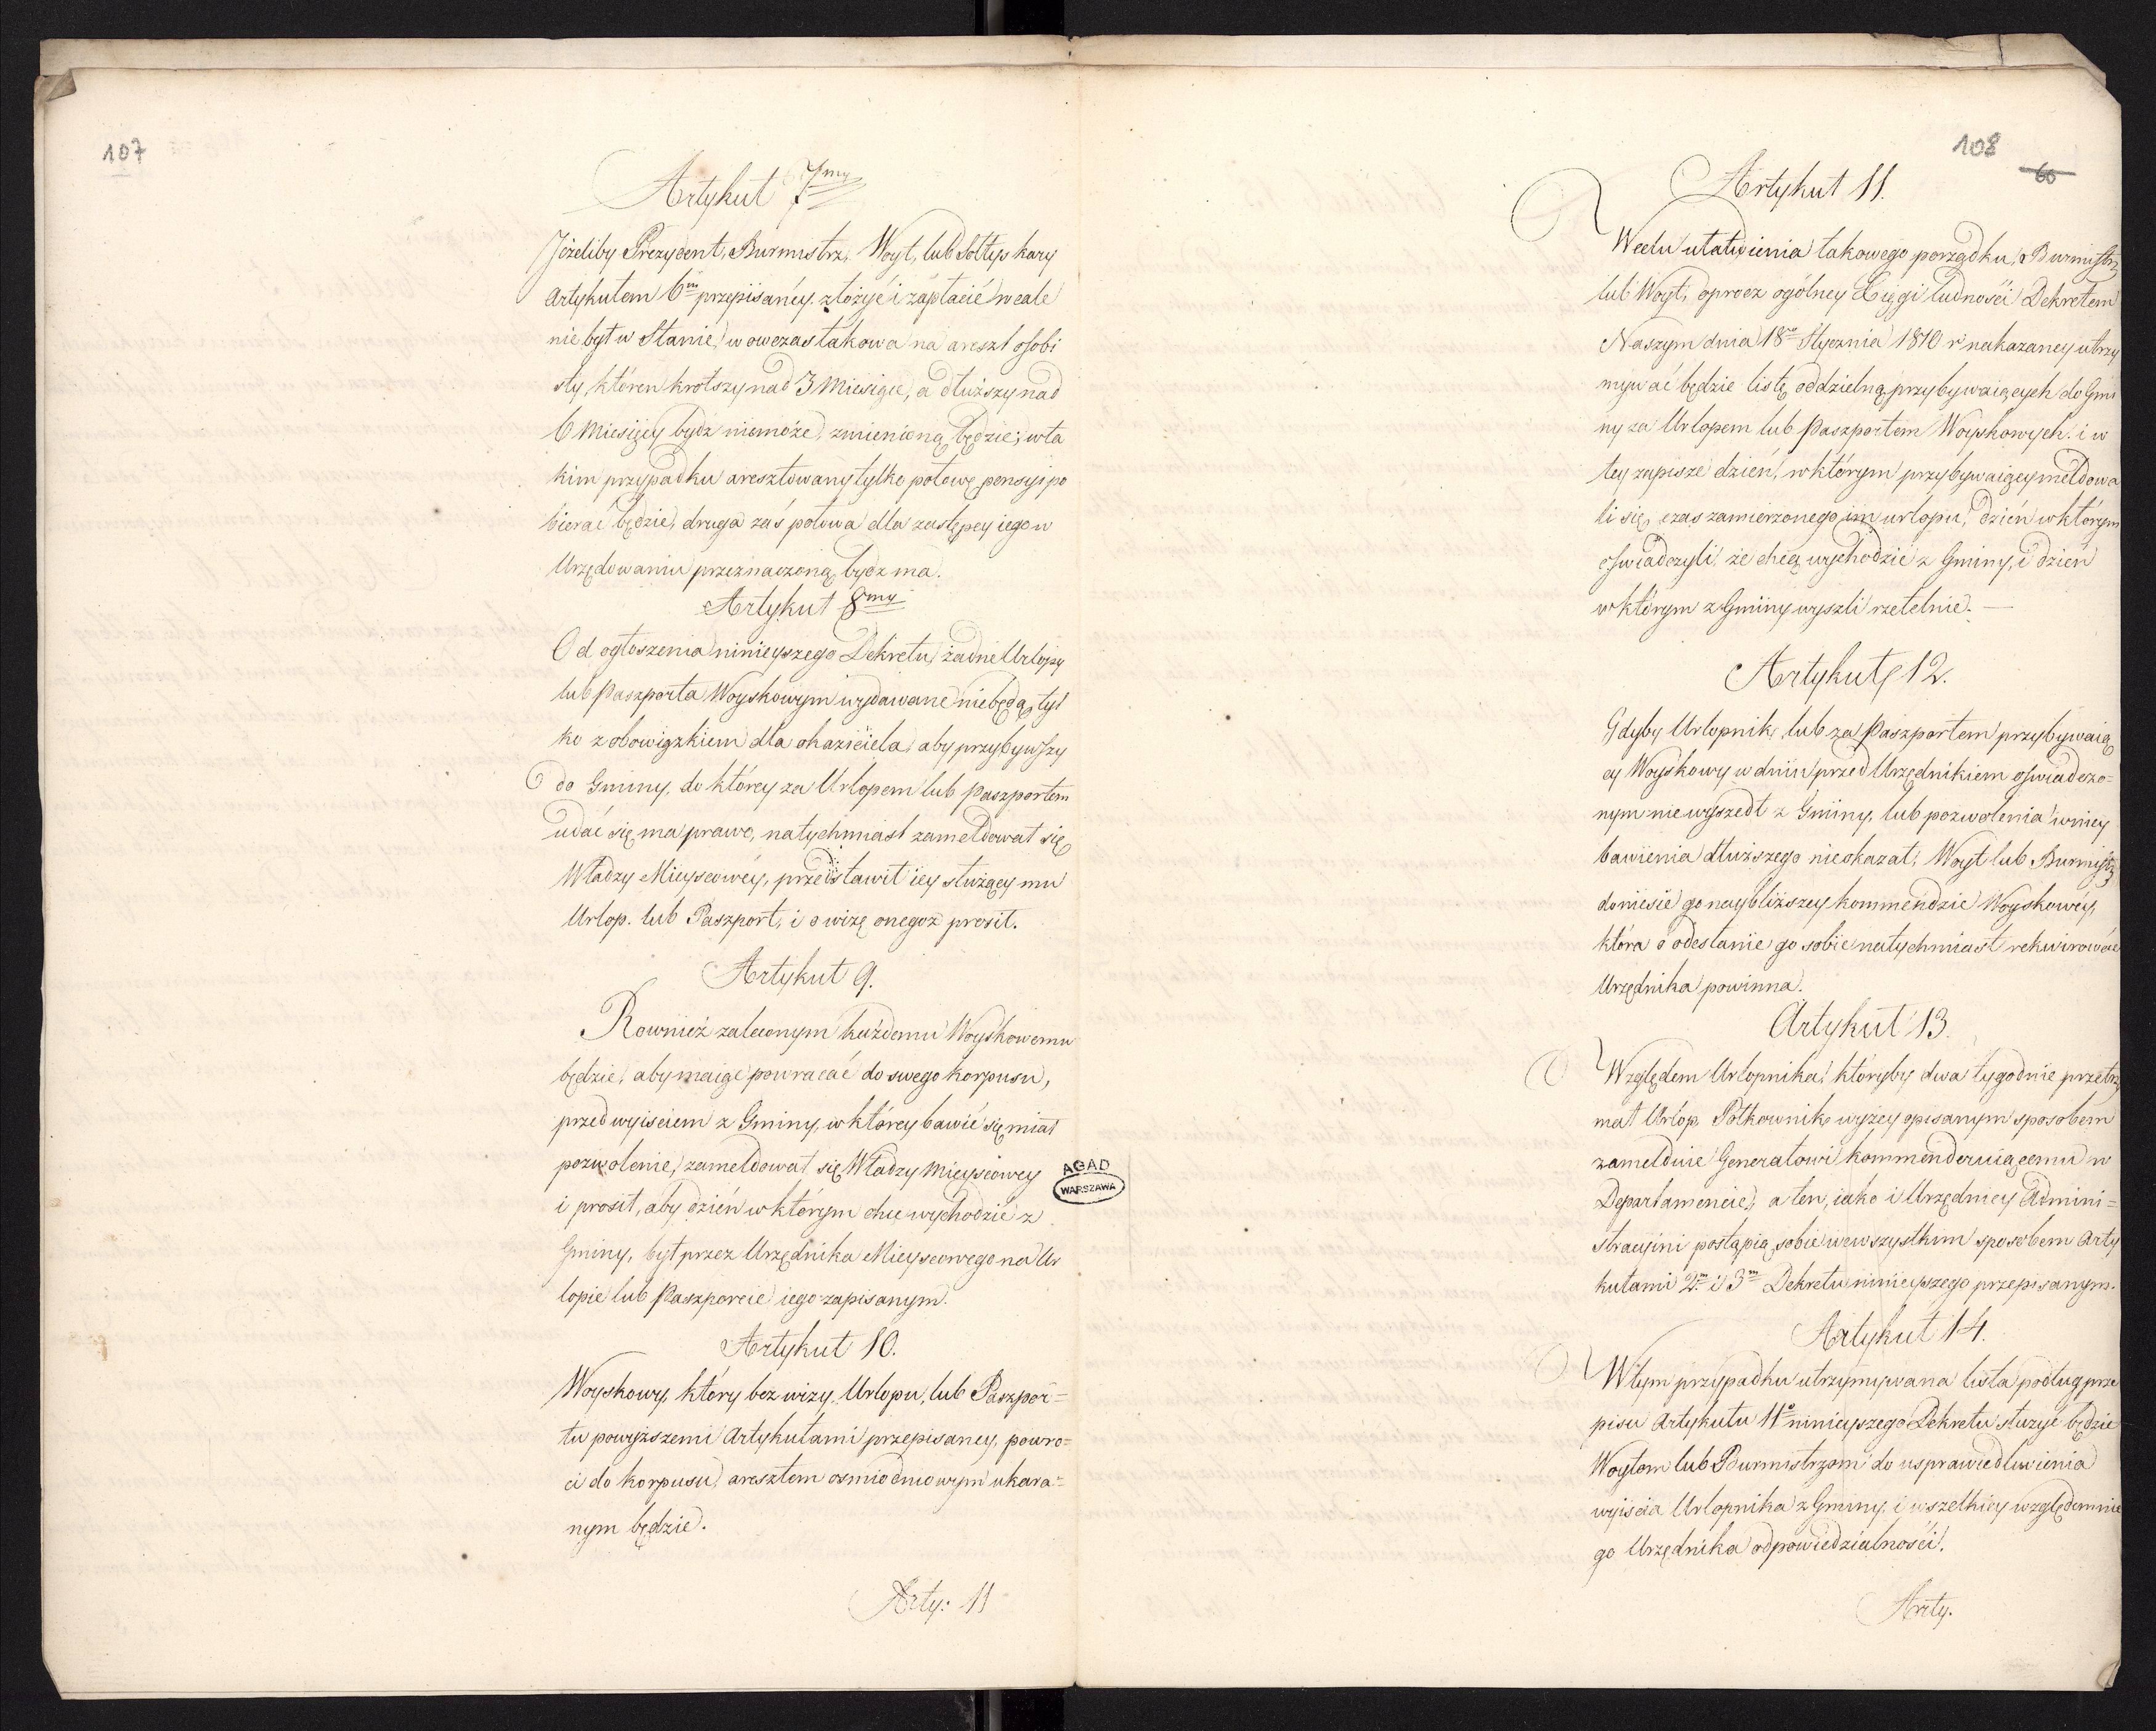 107
Artykuł 7my
Jeżeliby Prezydent, Burmistrz, Woyt, lub Sołtys kary
Artykułem 6m przepisaney złożyć i zapłacić wcale
nie był w Stanie, w owczas takowa na areszt osobi
sty, któren krotszy nad 3 Miesiące, a dłuższy nad
6 Miesięcy bydź niemoże, zmienioną będzie; w ta
kim przypadku aresztowany tylko połowę pensyi po
bierać będzie, druga zaś połowa dla zastępcy iego w
Urzędowaniu przeznaczoną bydź ma.
Artykuł 8my
Od ogłoszenia ninieyszego Dekretu, żadne Urlopy
lub Paszporta Woyskowym wydawane niebędą, tyl
ko z obowiązkiem dla okaziciela, aby przybywszy
do Gminy, do którey za Urlopem lub Paszportem
udać się ma prawo, natychmiast zameldował się
Władzy Mieyscowéy, przedstawił iey służący mu
Urlop. lub Paszport, i o wizę onegoż prosił.
Artykuł 9.
Rownież zaleconym każdemu Woyskowemu
będzie, aby maiąc powracać do swego Korpusu,
przed wyisciem z Gminy, w którey bawić się miał
pozwolenie, zameldował się Władzy Mieyscowey
i prosił, aby dzień w którym chce wychodzić z
Gminy, był przez Urzędnika Mieyscowego na Ur
lopie lub Paszporcie iego zapisanym.
Artykuł 10.
Woyskowy, który bez wizy Urlopu, lub Paszpor=
tu powyższemi Artykułami przepisaney, powro=
ci do Korpusu, aresztem osmiodniowym ukara=
nym będzie.
Arty: 11
AGAD
WARSZAWA
108
60
Artykuł 11.
W celu ułatwienia takowego porządku, Burmistrz
lub Woyt, oprocz ogólney Xięgi ludności Dekretem
Naszym dnia 18go Stycznia 1810 r nakazaney utrzy
mywać będzie listę oddzielną przybywaiących do Gmi
ny za Urlopem lub Paszportem Woyskowych. i w
tey zapisze dzień, w którym przybywaiący meldowa
li się, czas zamierzonego im urlopu, dzień w którym
oswiadczyli, że chcą wychodzić z Gminy, i dzień
w którym z Gminy wyszli rzetelnie. —
Artykuł 12.
Gdyby Urlopnik, lub za Paszportem przybywaią
cy Woyskowy w dniu przed Urzędnikiem oswiadczo=
nym nie wyszedł z Gminy, lub pozwolenia w niey
bawienia dłuższego nieokazał, Woyt lub Burmistrz
doniesie go naybliższey kommendzie Woyskowéy,
która o odesłanie go sobie natychmiast rekwirować
Urzędnika powinna.
Artykuł 13.
Względem Urlopnika, któryby dwa tygodnie przetrzy
mał Urlop, Półkownik wyżey opisanym sposobem
zamelduie Generałowi kommenderuiącemu w
Departamencie, a ten, iako i Urzędnicy Admini=
stracyini postąpią sobie wewszystkim sposobem Arty
kułami 2m i 3m Dekretu ninieyszego przepisanym.
Artykuł 14.
W tym przypadku utrzymywana lista podług prze
pisu Artykułu 11o ninieyszego Dekretu służyć będzie
Woytom lub Burmistrzom do usprawiedliwienia
wyiscia Urlopnika z Gminy, i wszelkiey względem nie
go Urzędnika odpowiedzialności.
Arty.